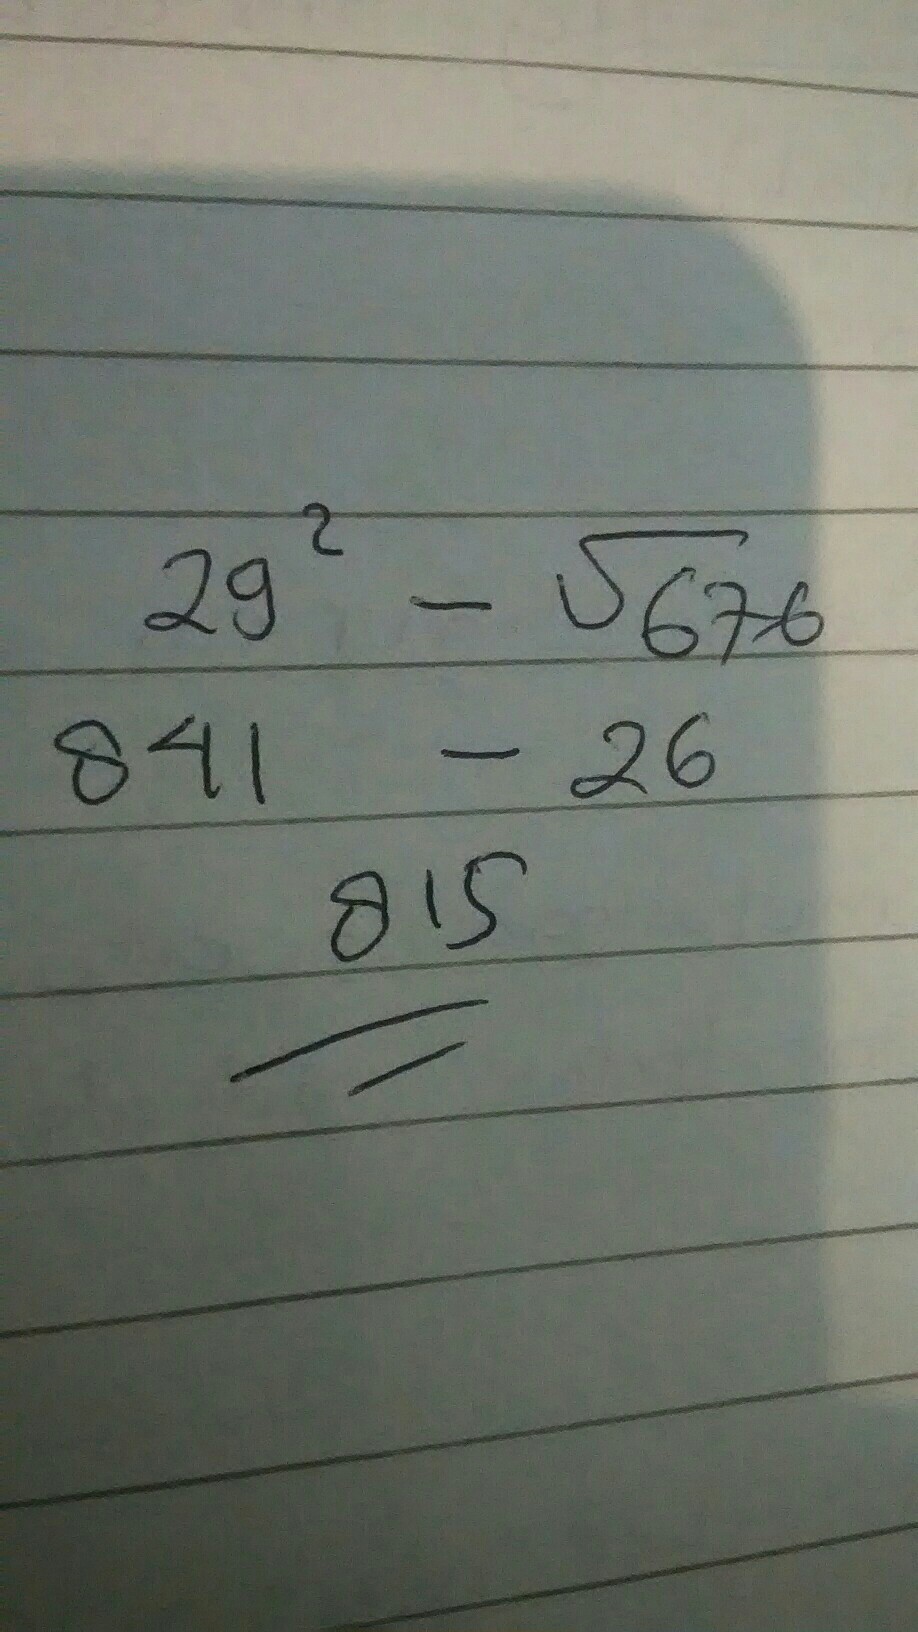 29² - √676
841 - 26
815